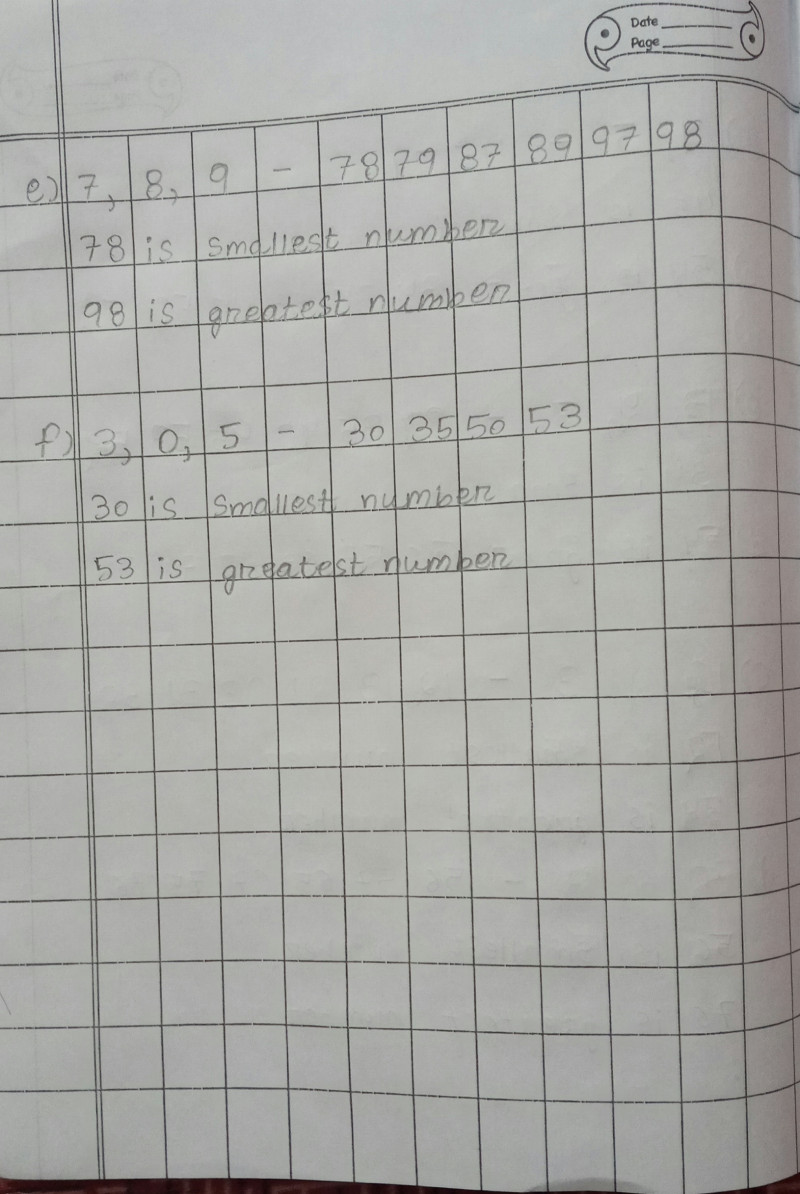 Date
Page
e) 7, 8, 9 - 78 79 87 89 97 98
78 is smallest number
98 is greatest number
f) 3, 0, 5 - 30 35 50 53
30 is smallest number
53 is greatest number